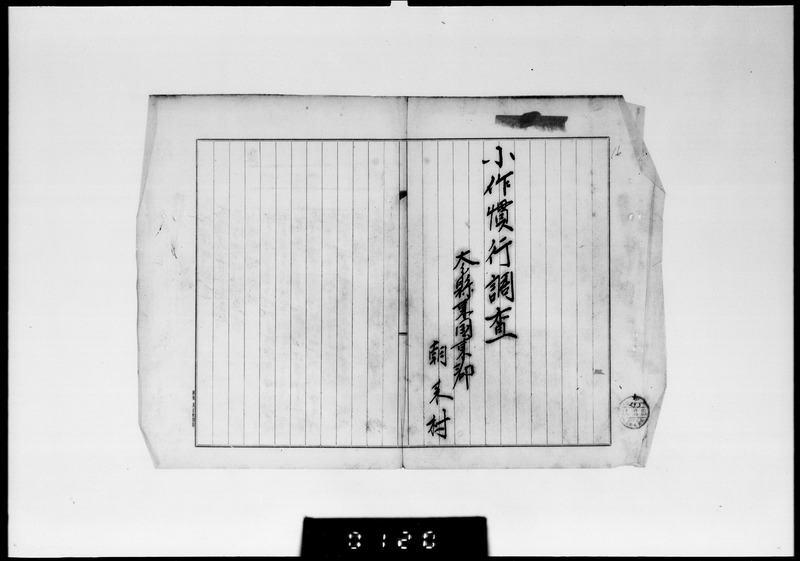 小作慣行調査
大分縣東国東郡
朝来村
0120